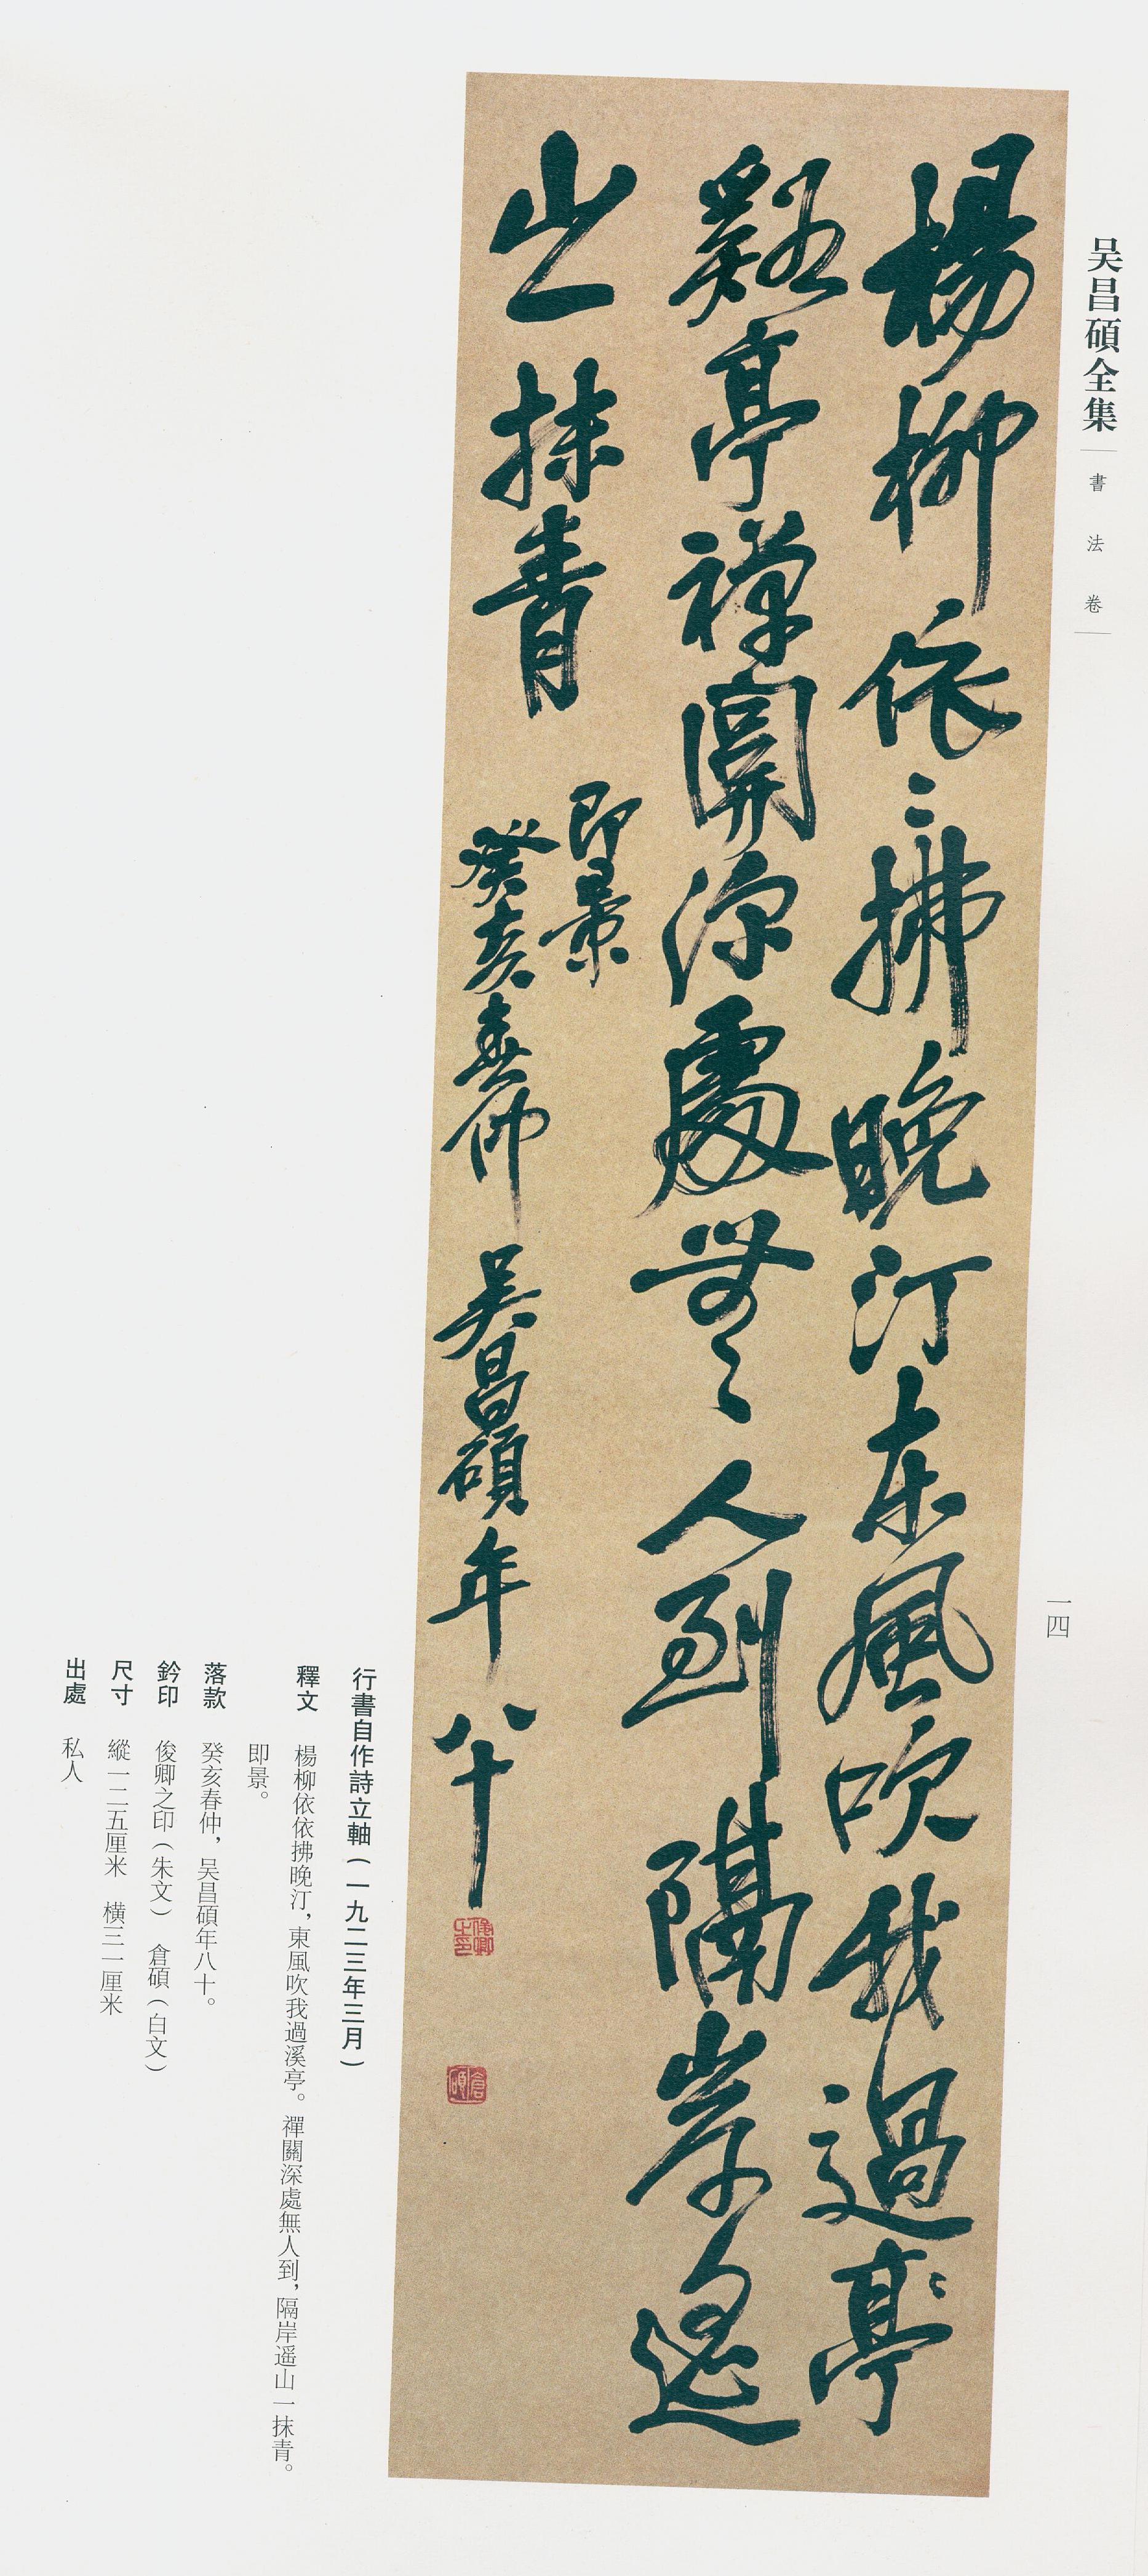 吴昌碩全集
書法卷
一四
楊柳依〻拂晚汀東風吹我過亭
谿亭禪關深處無人到隔岸遥
山一抹青
即景
癸亥春仲吳昌碩年八十
俊卿之印
倉碩
行書自作詩立軸(一九二三年三月)
釋文 楊柳依依拂晚汀，東風吹我過溪亭。禪關深處無人到，隔岸遥山一抹青。
即景。
落款 癸亥春仲，吴昌碩年八十。
鈐印 俊卿之印(朱文) 倉碩(白文)
尺寸 縱一二五厘米 橫三一厘米
出處 私人